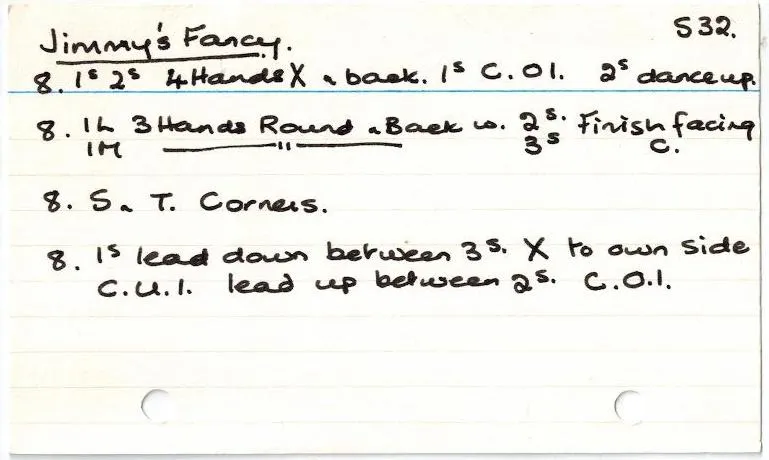 Jimmy's Fancy. S32.
8. 1s 2s 4 Hands X & back. 1s C.O1. 2s dance up.
8. 1L 3 Hands Round & Back w. 2s. Finish facing
1M " 3s C.
8. S & T. Corners.
8. 1s lead down between 3s. X to own side
C.U.1. lead up between 2s. C.O.1.